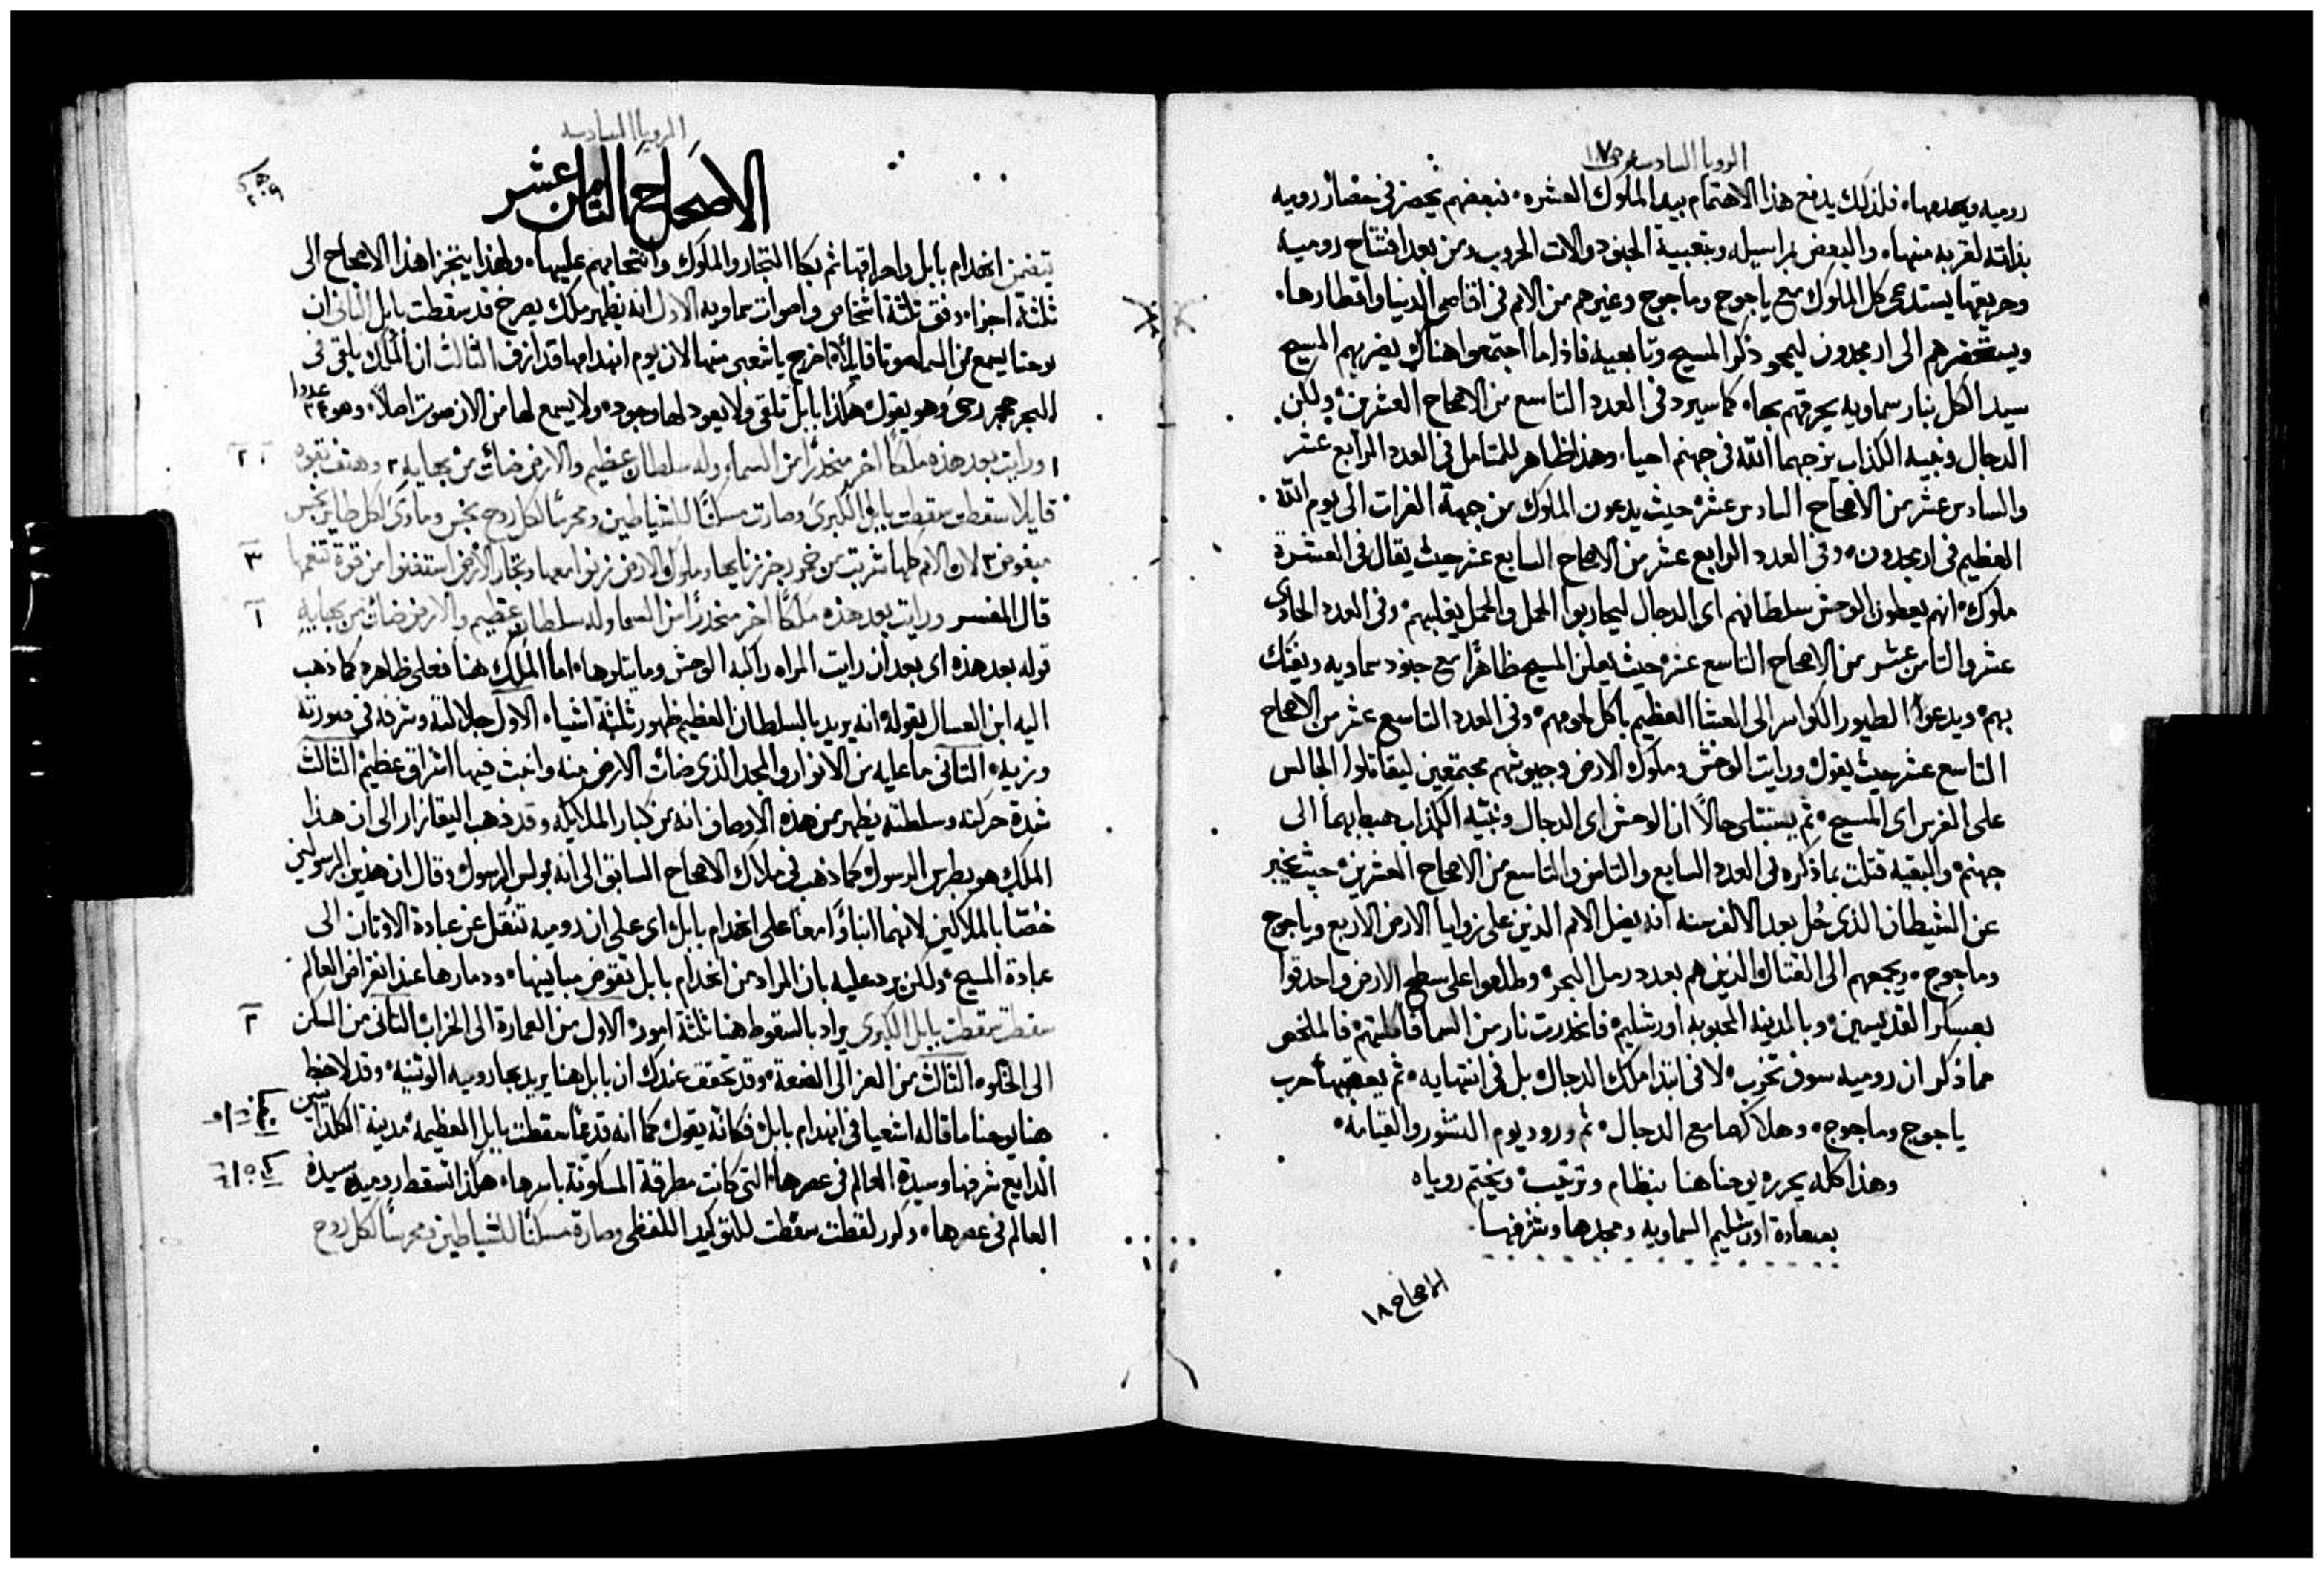 الرويا السادسه ص ١٧
روميه ويعدمها، فلذلك يدفع هذا الاهتمام بيد الملوك العشره، فبعضهم يحضر في حصار روميه
بذاته لقربه منها، والبعض بمراسيله وبتعبية الجنود والات الحروب ومن بعد افتتاح روميه
وحريقها يستدعى كل الملوك مع ياجوج وماجوج وغيرهم من الامم في اقاصى الدنيا واقطارها،
ويستحضرهم الى ارمجدون ليمحو ذكر المسيح وتابعيه فاذاما اجتمعوا هناك يضربهم المسيح
سيد الكل بنار سماويه يحرقهم بها، كما سيرد في العدد التاسع من الاصحاح العشرين، ولكن
الدجال ونبيه الكذاب يزجهما الله في جهنم احيا، وهذا ظاهر للمتامل في العدد الرابع عشر
والسادس عشر من الاصحاح السادس عشر حيث يدعون الملوك من جهة الفرات الى يوم الله
العظيم في ارمجدون، وفي العدد الرابع عشر من الاصحاح السابع عشر حيث يقال في العشرة
ملوك، انهم يعطون الوحش سلطانهم اى الدجال ليحاربوا الحمل والحمل يغلبهم، وفي العدد الحادى
عشر والثامن عشر من الاصحاح التاسع عشر حيث يعلن المسيح ظاهرًا مع جنود سماويه ويفتك
بهم، ويدعوا الطيور الكواسر الى العشا العظيم باكل لحومهم، وفي العدد التاسع عشر من الاصحاح
التاسع عشر حيث يقول ورايت الوحش وملوك الارض وجيوشهم مجتمعين ليقاتلوا الجالس
على الفرس اى المسيح، ثم يستتلى حالاً ان الوحش اى الدجال ونبيه الكذاب هبط بهما الى
جهنم، والبقيه قتلت بما ذكره في العدد السابع والثامن والتاسع من الاصحاح العشرين، حيث يخبر
عن الشيطان الذى حُل بعد الالف سنه انه يضل الامم الذين على زوايا الارض الاربع وياجوج
وماجوج، ويجمعهم الى القتال والذين هم بعدد رمل البحر، وطلعوا على سطح الارض واحدقوا
بعسكر القديسين، وبالمدينه المحبوبه اورشليم فانحدرت نار من السما فاكلتهم، فالملخص
مما ذكر ان روميه سوف تخرب، لا في ابتدا ملك الدجال بل في انتهايه، ثم يعقبها حرب
ياجوج وماجوج، وهلاكهما مع الدجال، ثم ورود يوم النشور والقيامه،
وهذا كله يحرره يوحنا هنا بنظام وترتيب، ويختم روياه
بسعادة اورشليم السماويه ومجدها وشرفها
الاصحاح ١٨
الرويا السادسه
الاصحاح الثامن عشر
يتضمن انهدام بابل واحراقها ثم بكا التجار والملوك وانتحابهم عليها، ولهذا يتجزا هذا الاصحاح الى
ثلثة اجزا، وفق ثلثة اشخاص واصوات سماويه الاول انه يظهر ملك يصرخ قد سقطت بابل الثانى ان
يوحنا يسمع من السما صوتا قايلاً اخرج يا شعبى منها لان يوم انهدامها قد ازف الثالث ان الملك يلقى في
البحر حجر رحى وهو يقول هكذا بابل تلقى ولا يعود لها وجود، ولا يسمع لها من الان صوت اصلاً، وهو ٢٤ عددا
١ ورايت بعد هذه ملكًا اخر منحدرًا من السما، وله سلطان عظيم والارض ضاءت من بهايه، ٢ وهتف بقوه
قايلا سقطت سقطت بابل الكبرى وصارت مسكنًا للشياطين ومحرسًا لكل روح نجس وماوى لكل طاير نجس
مبغوض ٣ لان الامم كلها شربت من خمر رجز زنايها، وملوك الارض زنوا معها وتجار الارض استغنوا من قوة تنعمها
قال المفسر ورايت بعد هذه ملكًا اخر منحدرًا من السما وله سلطان عظيم والارض ضاءت من بهايه
قوله بعد هذه اى بعد ان رايت المراه راكبه الوحش وما يتلوها، اما الملك هنا فعلى ظاهره كما ذهب
اليه ابن العسال بقوله انه يريد بالسلطان العظيم ظهور ثلثة اشيا، الاول جلالته وشرفه في صورته
وزيه، الثانى ما عليه من الانوار والمجد الذى ضاءت الارض منه واضحت فيها اشراق عظيم الثالث
شدة حركته وسلطته يظهر من هذه الاوصاف انه من كبار الملايكه، وقد ذهب اليقازار الى ان هذا
الملك هو بطرس الرسول كما ذهب في ملاك الاصحاح السابق الى انه بولس الرسول، وقال ان هذين الرسولين
خُصّا بالملاكين لانهما انباءا معًا على انهدام بابل اى على ان روميه تنتقل عن عبادة الاوثان الى
عبادة المسيح، ولكن يرد عليه بان المراد من انهدام بابل تقوض مبانيها، ودمارها عند انقراض العالم
سقطت سقطت بابل الكبرى يراد بالسقوط هنا ثلثة امور، الاول من العمارة الى الخراب الثانى من السكن
الى الخلو، الثالث من العز الى الضعة، وقد تحقق عندك ان بابل هنا يريد بها روميه الوثنيه، وقد لاحظ
هنا يوحنا ما قاله اشعيا في انهدام بابل، فكانه يقول كما انه قديمًا سقطت بابل العظيمه، مدينة الكلدانيين
الذايع شرفها وسيدة العالم في عصرها، التى كانت مطرقة المسكونة باسرها، هكذا تسقط روميه سيدة
العالم في عصرها، وكرر لفظت سقطت للتوكيد اللفظى وصارة مسكنًا للشياطين ومحرسًا لكل روح